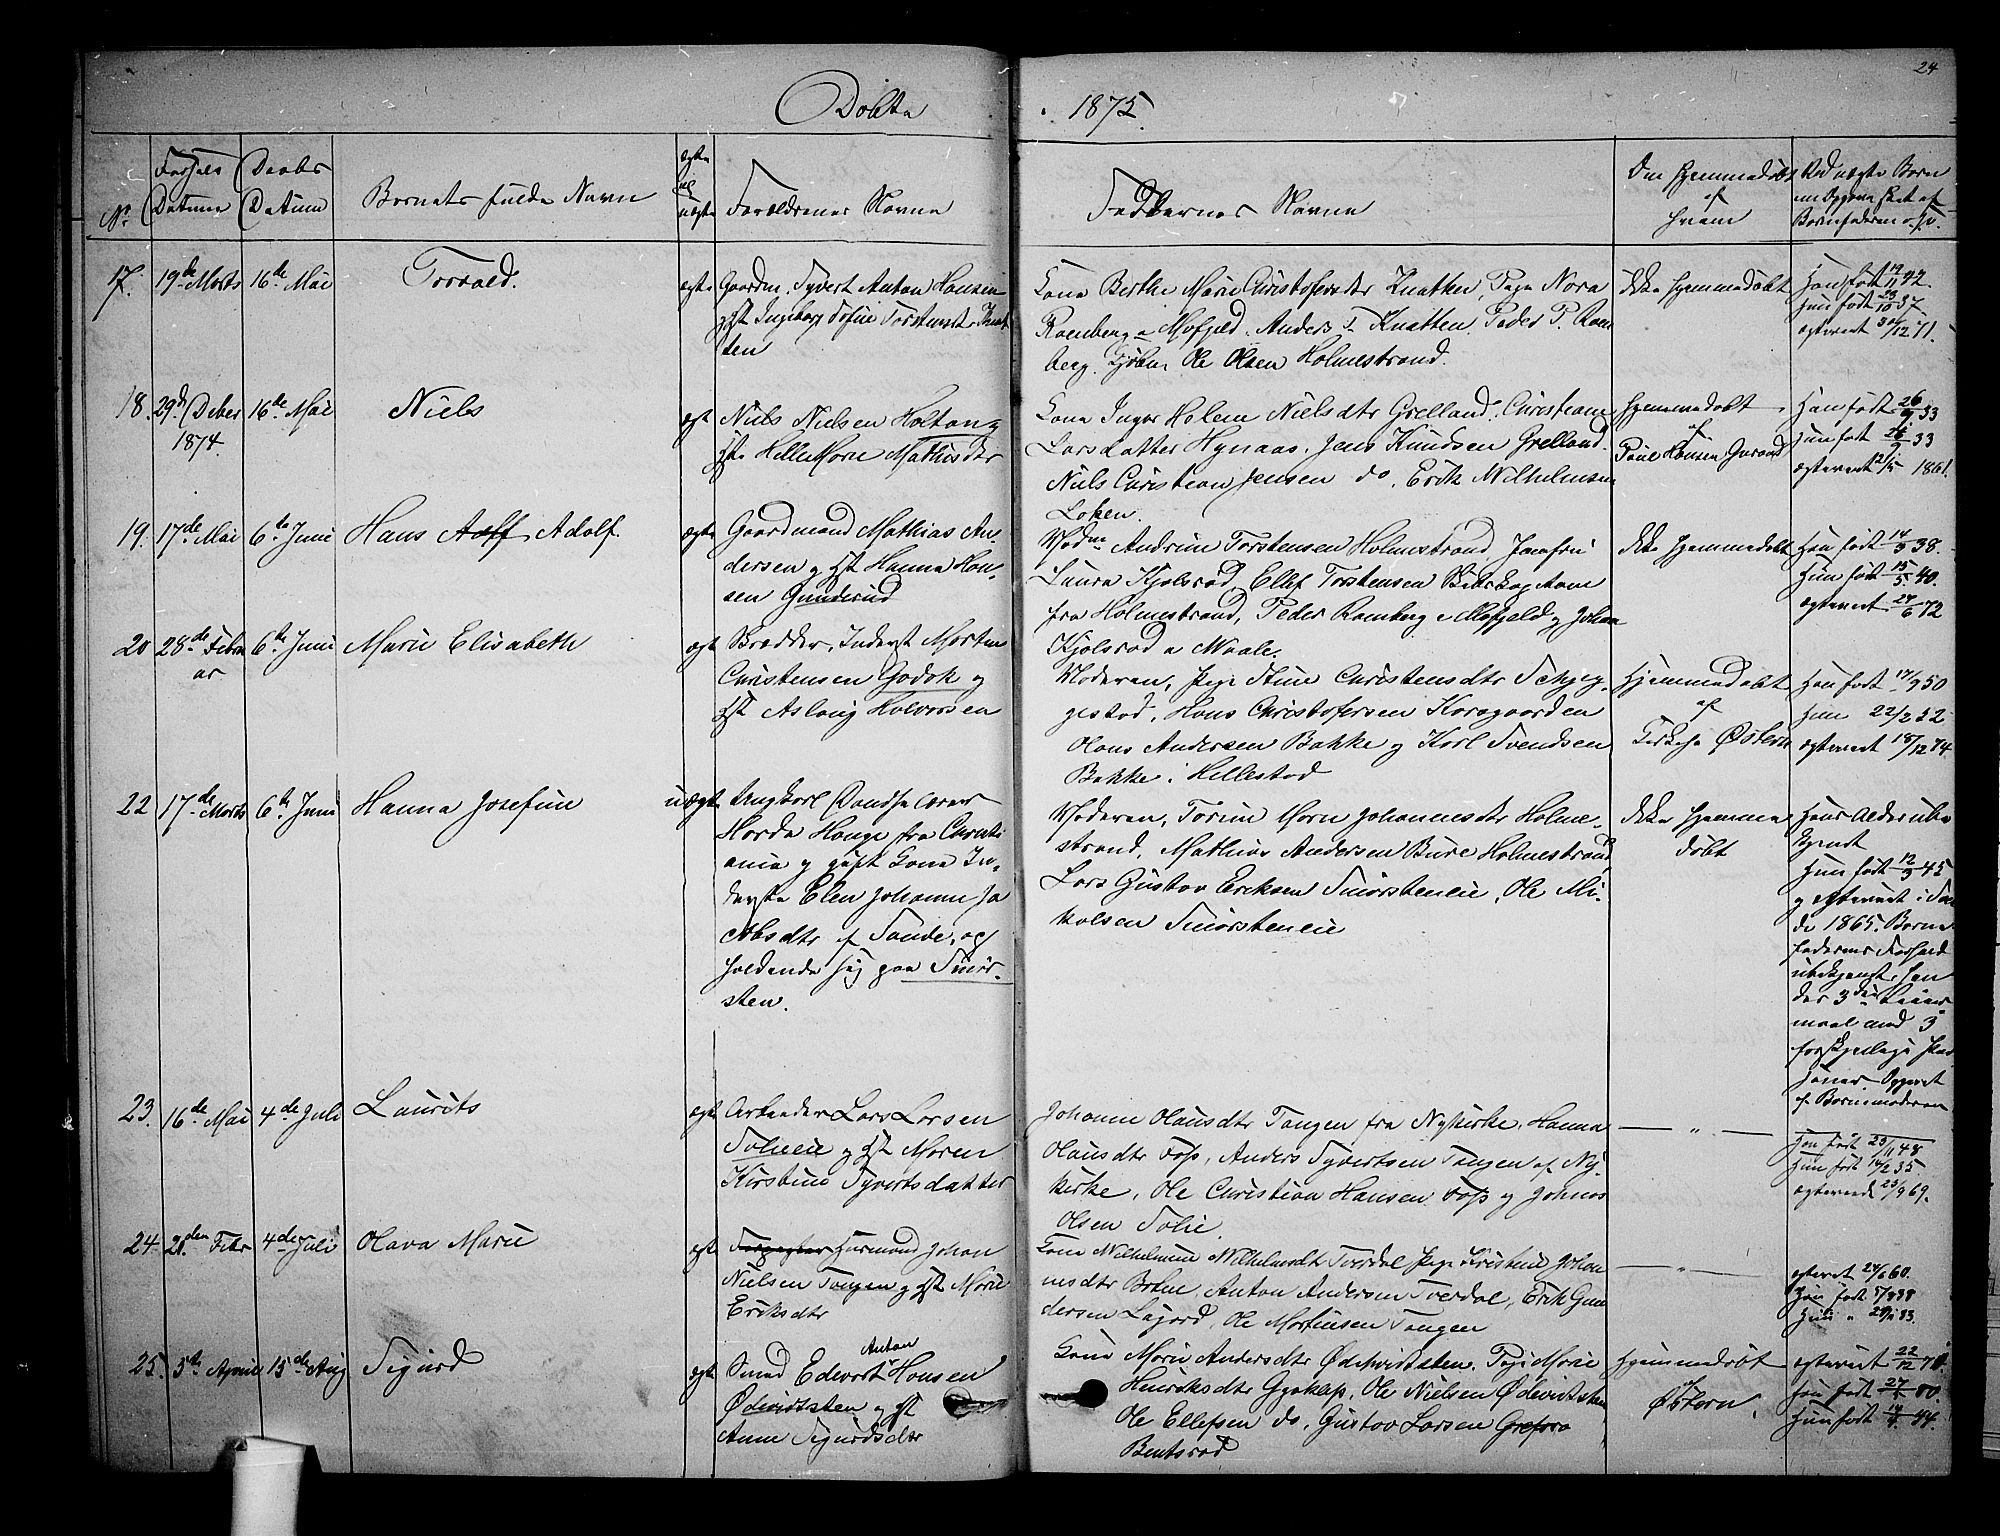 24
Döbte
1875.
No.
Fødsels Datum
Daabs Datum
Barnets fulde Navn
ægte el. uægte
Forældrenes Navne
Faddernes Navne
Om hjemmedöbt
af
hvem
Ved uægte Børn
17. 19de Marts 16de Mai Torvald. ægte
Gaardm. Syvert Anton Hansen
og Hst Ingeborg Tofine Torstensdtr Knat
ten
Kone Berthe Marie Christofersdtr Knatten, Pige Nora
Ramberg a Mofjeld. Anders T. Knatten. Peder P. Ram
berg. Kjöbm. Ole Olsen Holmestrand.
Ikke hjemmedöbt
Han født 42.
Hun født 37
ægteviet 30/12 71.
18. 29de Deber 16de Mai Niels ægt
1874.
Niels Nielsen Holtan og
Hst Helle Marie Mathisdtr
Kone Inger Helene Nielsdtr Grelland. Christiane
Larsdatter Hynaas. Jens Knudsen Grelland.
Niels Christian Jensen do, Erik Wilhelmsen
Löken.
Hjemmedöbt
af
Poul Hansen
Han født 26/9 33
Hun født 33
ægteviet 1861.
19. 17de Mai 6te Juni Hans Adolf. ægte
Gaardmand Mathias An
dersen og Hst Hanna Han
sen Gunderud
Mod. Andrine Torstensen Holmestrand, Jomfru
Laura Kjölsröd, Ellef Torstensen Skibskaptein
fra Holmestrand, Peder Ramberg a Mofjeld og Johan
Kjölsröd a Vaale.
Ikke hjemmedöbt
Han født 14/3 38.
Hun født 15/5 40.
ægteviet 24/6 72
20 28de Febru 6te Juni Marie Elisabeth ægt
ar
Inderst Morten
Christensen Godok og
Hst Aslaug Halvorsen
Moderen, Pige Stine Christensdtr Schjeg
gestad, Hans Christofersen Koragaarden
Hans Andersen Bakke og Karl Svendsen
Bakke i Hillestad
Hjemmedöbt
af
Han født 17/9 50
Hun 22/2 52
ægteviet 18/12 74.
22 17de Marts 6te Juni Hanna Josefine uægte
Ungkarl Dandselærer
Horda Hauge fra Christi
ania og gift Kone In
derste Elen Johanne Ja
cobsdtr af Sande, op
holdende sig paa Smör-
sten.
Moderen, Torine Marn Johannesdtr Holme-
strand, Mathias Andersen Bure Holmestrand
Lars Gustav Eriksen Smörsteneie, Ole Mi-
kelsen Smörsteneie
Ikke hjemme
döbt
Hans Alder ube
kjendt
Hun født 12/3 45
og efterviet i San
de 1865. Barne
faderens Forhold
ubekjendt, hen
des 3die Leier
maal med 3
forskjellige Per
soner. Opgivet
af Barnemoderen
23. 16de Mai 4de Juli Laurits ægte
Arbeider Lars Larsen
Solieie og Hst Maren
Kirstine Syvertsdatter
Johanne Olausdtr Tangen fra Nykirke. Hanna
Olausdtr Fos, Anders Syvertsen Tangen af Ny-
kirke, Ole Christian Hansen Fos og Johnas
Olsen Solie.
— " —
Han født 23/11 48
Hun født 14/2 35
ægteviede 23/9 69.
24 21den Febr 4de Juli Olava Marie ægt
Husmand Johan
Nielsen Tangen og Hst Marie
Eriksdtr
Kone Wilhelmine Wilhelmsdtr Tverdal Pige Kristine Johan
nesdtr Brekne, Anton Andersen Tverdal, Erik Gun
dersen Lajord, Ole Mortinsen Tangen
— " —
ægteviet 24/6 60.
Han født 5/9 38
Hun " 29/1 33.
25. 5te April 15de Aug Sigurd ægt
Smed Edevart Anton Hansen
Ødevidtsten og Hst
Anne Sigurdsdtr
Kone Marie Andersdtr Ødevidtsten. Pige Marie
Henriksdtr Gyaklep, Ole Nielsen Ødevidtsten
Ole Ellefsen do, Gustav Larsen
Bentsrød
Hjemmedöbt
af
Østern.
ægteviet 22/12 70.
Han født 50.
Hun født 44.